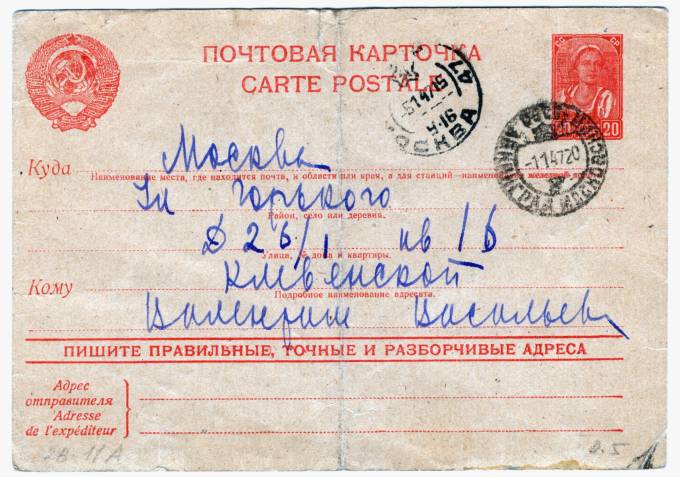 ПОЧТОВАЯ КАРТОЧКА
CARTE POSTALE
20
МОСКВА 47
5147-15
У-16
СССР ЛЕНИНГРАД МОСКОВСКИЙ
-114720
Куда Москва
Наименование места, где находится почта, и области или края, а для станций—наименование железной дор.
Ул Горького
Район, село или деревня.
Д 26/1 кв 16
Улица, № дома и квартиры.
Кому Клевенской
Подробное наименование адресата.
Валентине Васильев
ПИШИТЕ ПРАВИЛЬНЫЕ, ТОЧНЫЕ И РАЗБОРЧИВЫЕ АДРЕСА
Адрес
отправителя
Adresse
de l'expéditeur
2В-11А